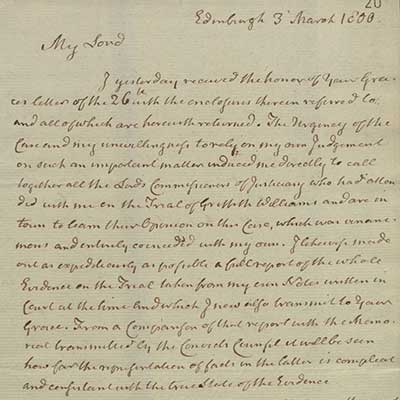 20
Edinburgh 3d March 1800.
My Lord
I yesterday received the honor of Your Gra=
ces letter of the 26th with the enclosures therein referred to,
and all of which are herewith returned. The Urgency of the
Case and my unwillingness to rely on my own Judgement
on such an important matter induced me directly to call
together all the Lords Commissioners of Justiciary who had atten
ded with me on the Trial of Griffith Williams and are in
town to learn their Opinion on this Case, which was unani=
mous and entirely coincided with my own. I likewise made
out as expeditiously as possible a full report of the whole
Evidence on the Trial taken from my own Notes written in
Court at the time and which I now also transmit to Your
Grace. From a Comparison of that report with the Memo=
rial transmitted by the Convicts Council it will be seen
how far the representation of facts in the latter is compleat
and consistant with the true State of the Evidence